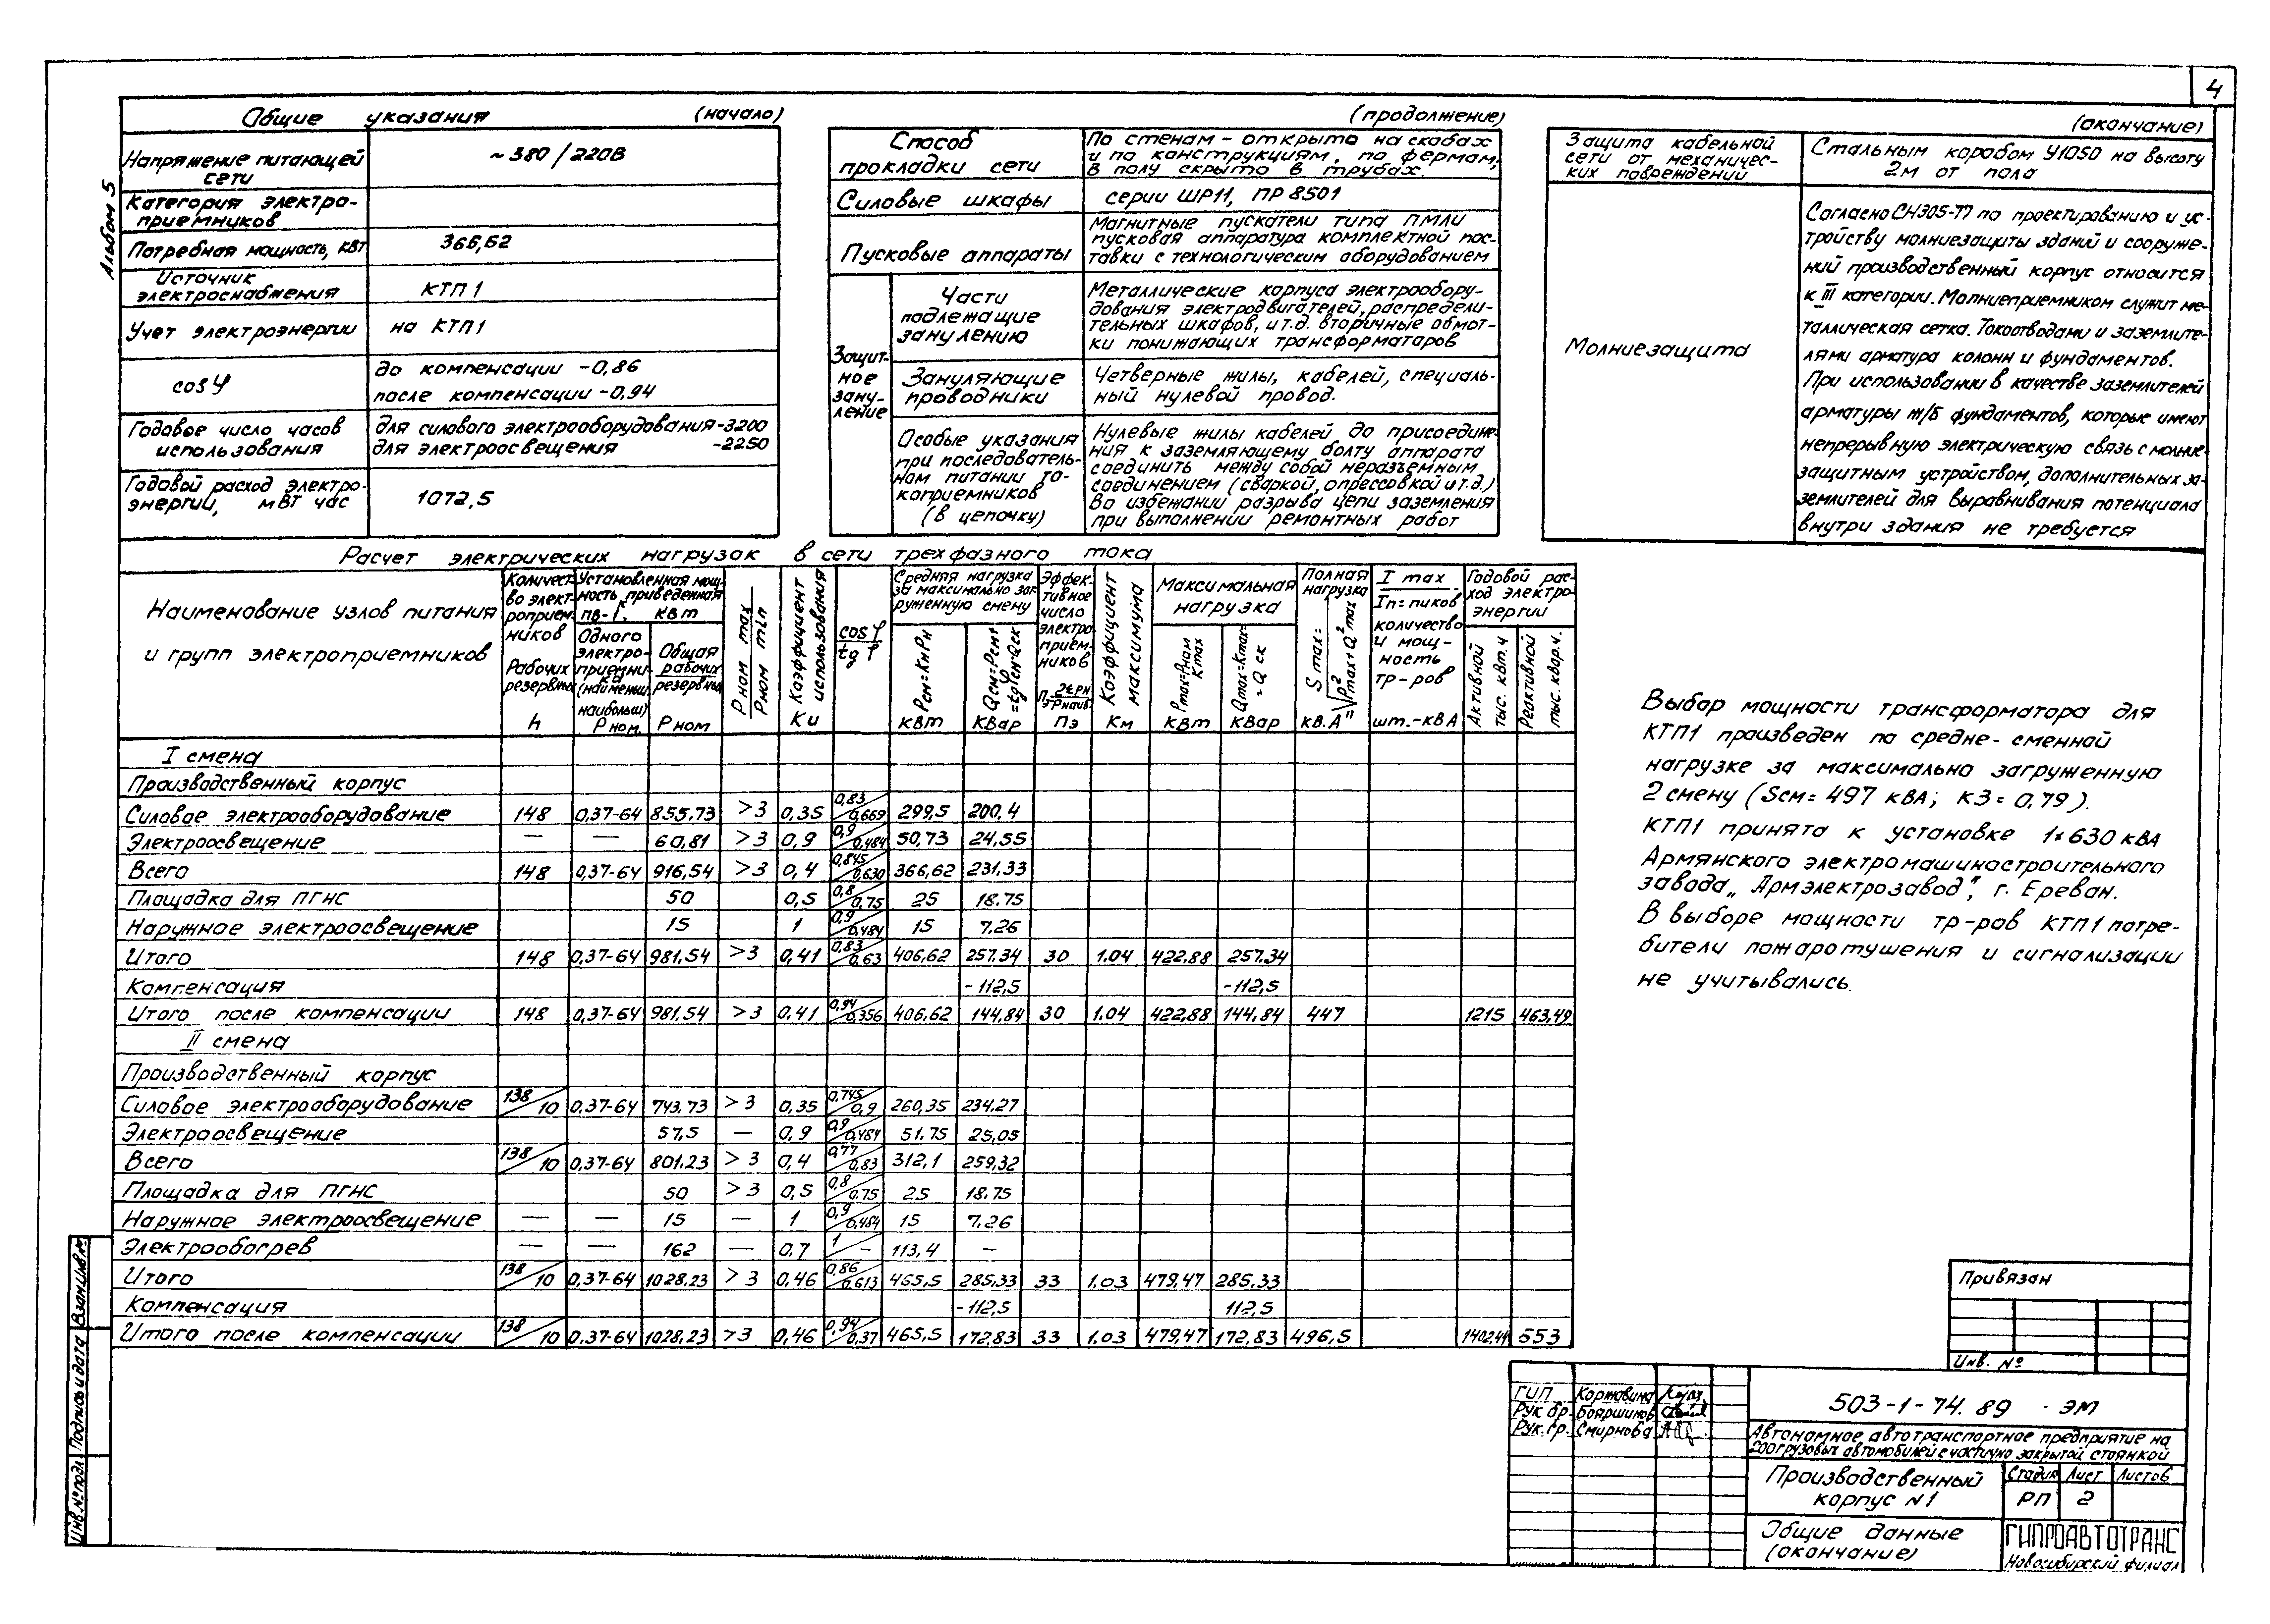 4
Альбом 5
Общие указания (начало)
Напряжение питающей сети ~380/220В
Категория электроприемников
Потребная мощность, кВт 366,62
Источник электроснабжения КТП1
Учет электроэнергии на КТП1
cosφ до компенсации -0,86
после компенсации -0,94
Годовое число часов использования для силового электрооборудования -3200
для электроосвещения -2250
Годовой расход электроэнергии, мВт час 1072,5
(продолжение)
Способ прокладки сети
По стенам – открыто на скобах
и по конструкциям, по фермам,
в полу скрыто в трубах.
Силовые шкафы серии ШР11, ПР 8501
Пусковые аппараты
Магнитные пускатели типа ПМЛИ
пусковая аппаратура комплектной пос-
тавки с технологическим оборудованием
Защит-
ное
зану-
ление
Части
подлежащие
занулению
Металлические корпуса электрообору-
дования электродвигателей, распредели-
тельных шкафов, и т.д. вторичные обмот-
ки понижающих трансформаторов
Зануляющие
проводники
Четверные жилы, кабелей, специаль-
ный нулевой провод.
Особые указания
при последователь-
ном питании то-
коприемников
(в цепочку)
Нулевые жилы кабелей до присоедине-
ния к заземляющему болту аппарата
соединить между собой неразъемным
соединением (сваркой, опрессовкой и т.д.)
Во избежании разрыва цепи заземления
при выполнении ремонтных работ
(окончание)
Защита кабельной
сети от механичес-
ких повреждений
Стальным коробом У1050 на высоту
2м от пола
Молниезащита
Согласно СН305-77 по проектированию и ус-
тройству молниезащиты зданий и сооруже-
ний производственный корпус относится
к III категории. Молниеприемником служит ме-
таллическая сетка. Токоотводами и заземлите-
лями арматура колонн и фундаментов.
При использовании в качестве заземлителей
арматуры ж/б фундаментов, которые имеют
непрерывную электрическую связь с молние-
защитным устройством, дополнительных за-
землителей для выравнивания потенциала
внутри здания не требуется
Расчет электрических нагрузок в сети трехфазного тока
Наименование узлов питания
и групп электроприемников
Количест-
во элект-
роприем-
ников
Рабочих
резервных
n
Установленная мощ-
ность приведенная
ПВ-1, кВт
Одного
электро-
приемни-
ка
(наименьш.
наибольш)
Рном.
Общая
рабочих
резервных
Рном
Рном max
Рном min
Коэффициент использования
Ки
cosφ
tgφ
Средняя нагрузка
за максимально заг-
руженную смену
Рсм=КиРн
кВт
Qсм=Рсм·tgφсм-Qск
кВар
Эффек-
тивное
число
электро-
прием-
ников
Пэ
Коэффициент максимума
Км
Максимальная
нагрузка
кВт
кВар
Полная
нагрузка
Smax=√P²max+Q²max
кв.А"
I max
Iп=пиков
количество
и мощ-
ность
тр-ров
шт.-кВА
Годовой рас-
ход электро-
энергии
Активной тыс. квт.ч
Реактивной тыс. квар.ч.
I смена
Производственный корпус
Силовое электрооборудование 148 0,37-64 855,73 >3 0,35 0,83/0,669 299,5 200,4
Электроосвещение — — 60,81 >3 0,9 0,9/0,484 50,73 24,55
Всего 148 0,37-64 916,54 >3 0,4 0,845/0,630 366,62 231,33
Площадка для ПГНС 50 0,5 0,8/0,75 25 18.75
Наружное электроосвещение 15 1 0,9/0,484 15 7.26
Итого 148 0,37-64 981,54 >3 0,41 0,83/0,63 406,62 257.34 30 1.04 422,88 257.34
Компенсация -112,5 -112,5
Итого после компенсации 148 0,37-64 981,54 >3 0,41 0,94/0,356 406,62 144,84 30 1.04 422,88 144,84 447 1215 463,49
II смена
Производственный корпус
Силовое электрооборудование 138/10 0,37-64 743,73 >3 0,35 0,745/0,9 260,35 234,27
Электроосвещение 57,5 — 0,9 0,9/0,484 51.75 25,05
Всего 138/10 0,37-64 801,23 >3 0,4 0,77/0,83 312,1 259,32
Площадка для ПГНС 50 >3 0,5 0,8/0.75 25 18.75
Наружное электроосвещение — — 15 — 1 0,9/0,484 15 7.26
Электрообогрев — — 162 — 0.7 1/– 113,4 –
Итого 138/10 0,37-64 1028,23 >3 0,46 0,86/0,613 465,5 285,33 33 1.03 479,47 285.33
Компенсация -112,5 112,5
Итого после компенсации 138/10 0.37-64 1028,23 >3 0,46 0,94/0,37 465,5 172,83 33 1.03 479,47 172,83 496,5 1402,44 553
Выбор мощности трансформатора для
КТП1 произведен по средне-сменной
нагрузке за максимально загруженную
2 смену (Sсм= 497 кВА; КЗ= 0,79).
КТП1 принята к установке 1×630 кВА
Армянского электромашиностроительного
завода „Армэлектрозавод", г. Ереван.
В выборе мощности тр-ров КТП1 потре-
бители пожаротушения и сигнализации
не учитывались.
Привязан
Инв. №
ГИП Коржавина
Рук бр. Бояршинов
Рук. гр. Смирнова
503-1-74.89 - ЭМ
Автономное автотранспортное предприятие на
200 грузовых автомобилей с частично закрытой стоянкой
Производственный
корпус №1
Стадия Лист Листов
РП 2
Общие данные
(окончание)
ГИПРОАВТОТРАНС
Новосибирский филиал
Взам.Инв.№
Подпись и дата
Инв.№подл